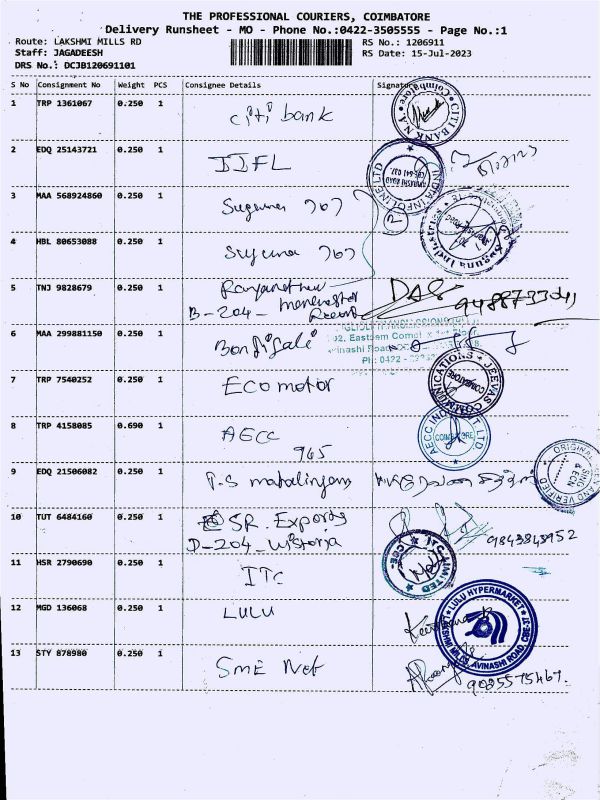 THE PROFESSIONAL COURIERS, COIMBATORE
Delivery Runsheet - MO - Phone No.:0422-3505555 - Page No.:1
Route: LAKSHMI MILLS RD
RS No.: 1206911
Staff: JAGADEESH
RS Date: 15-Jul-2023
DRS No.: DCJB120691101
S No Consignment No Weight PCS Consignee Details Signature
1 TRP 1361067 0.250 1 Citi bank
CITI BANK N.A. Coimbatore
2 EDQ 25143721 0.250 1 IIFL
INDIA INFOLINE LTD
AVINASHI ROAD
CBE-641 037
3 MAA 568924860 0.250 1 Suguna 707
4 HBL 80653088 0.250 1 Suguna 707
Suguna Industries
5 TNJ 9828679 0.250 1
B-204 - 
6 MAA 299881150 0.250 1
Ph: 0422 -
7 TRP 7540252 0.250 1 Eco motor
JEEVAS COMMUNICATIONS
COIMBATORE
8 TRP 4158085 0.690 1 AECC
945
COIMBATORE
9 EDQ 21506082 0.250 1 P.S mahalingam
ORIGINAL SEEN AND VERIFIED
10 TUT 6484160 0.250 1 SR. Exports
D-204 - Wistoria
9843848952
11 HSR 2790690 0.250 1 ITC
ITC LIMITED CBE
12 MGD 136068 0.250 1 LULU
LULU HYPERMARKET
LAKSHMI MILLS, AVINASHI ROAD, CBE-37
13 STY 878980 0.250 1 SME Net
9025575467.